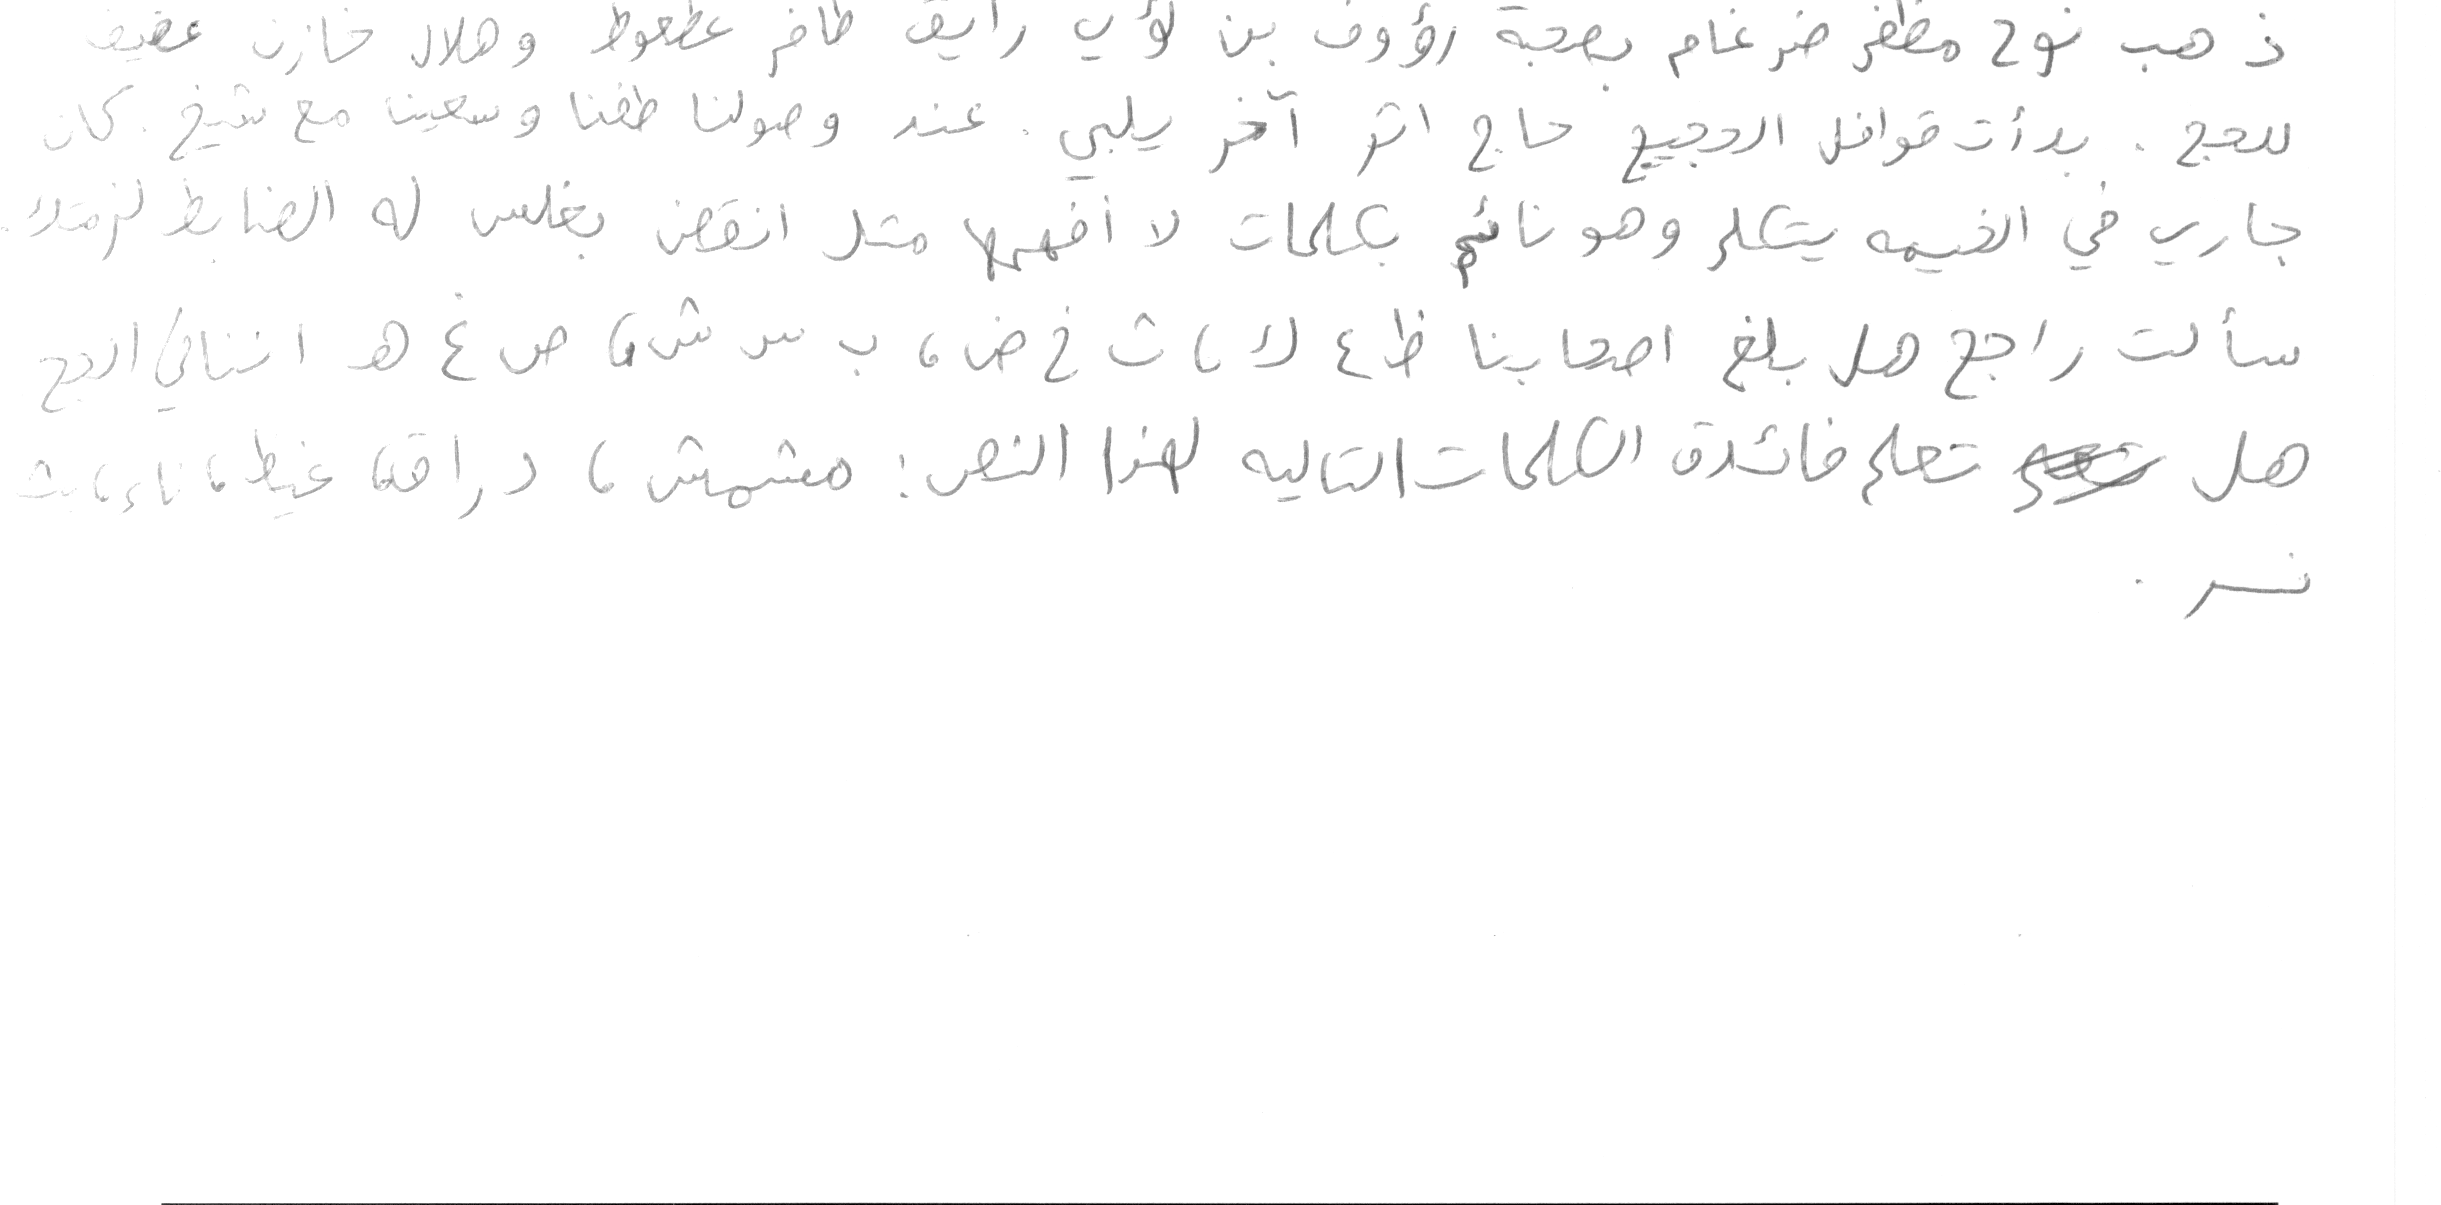 ذهب نوح مظفر ضرغام بصحبة رؤوف بن لؤي رايق ظافر عطعوط وهلال خازن عفيف
للحج . بدأت قوافل الحجيج حاج اثر آخر يلبي . عند وصولنا طفنا وسعينا مع شيخ . كان
جاري في الخيمه يتكلم وهو نائم بكلمات لا أفهمها مثل انقض بغلس له الضابط
سألت راجح هل بلغ اصحابنا ظ ع لا ، ث خ ض ، ب س ش ، ص غ هـ اثنائي الحج
هل تعلم فائدة الكلمات التاليه لهذا النص : مشمش ، دراق ، غيظ ، ناء ، بث
نسر .